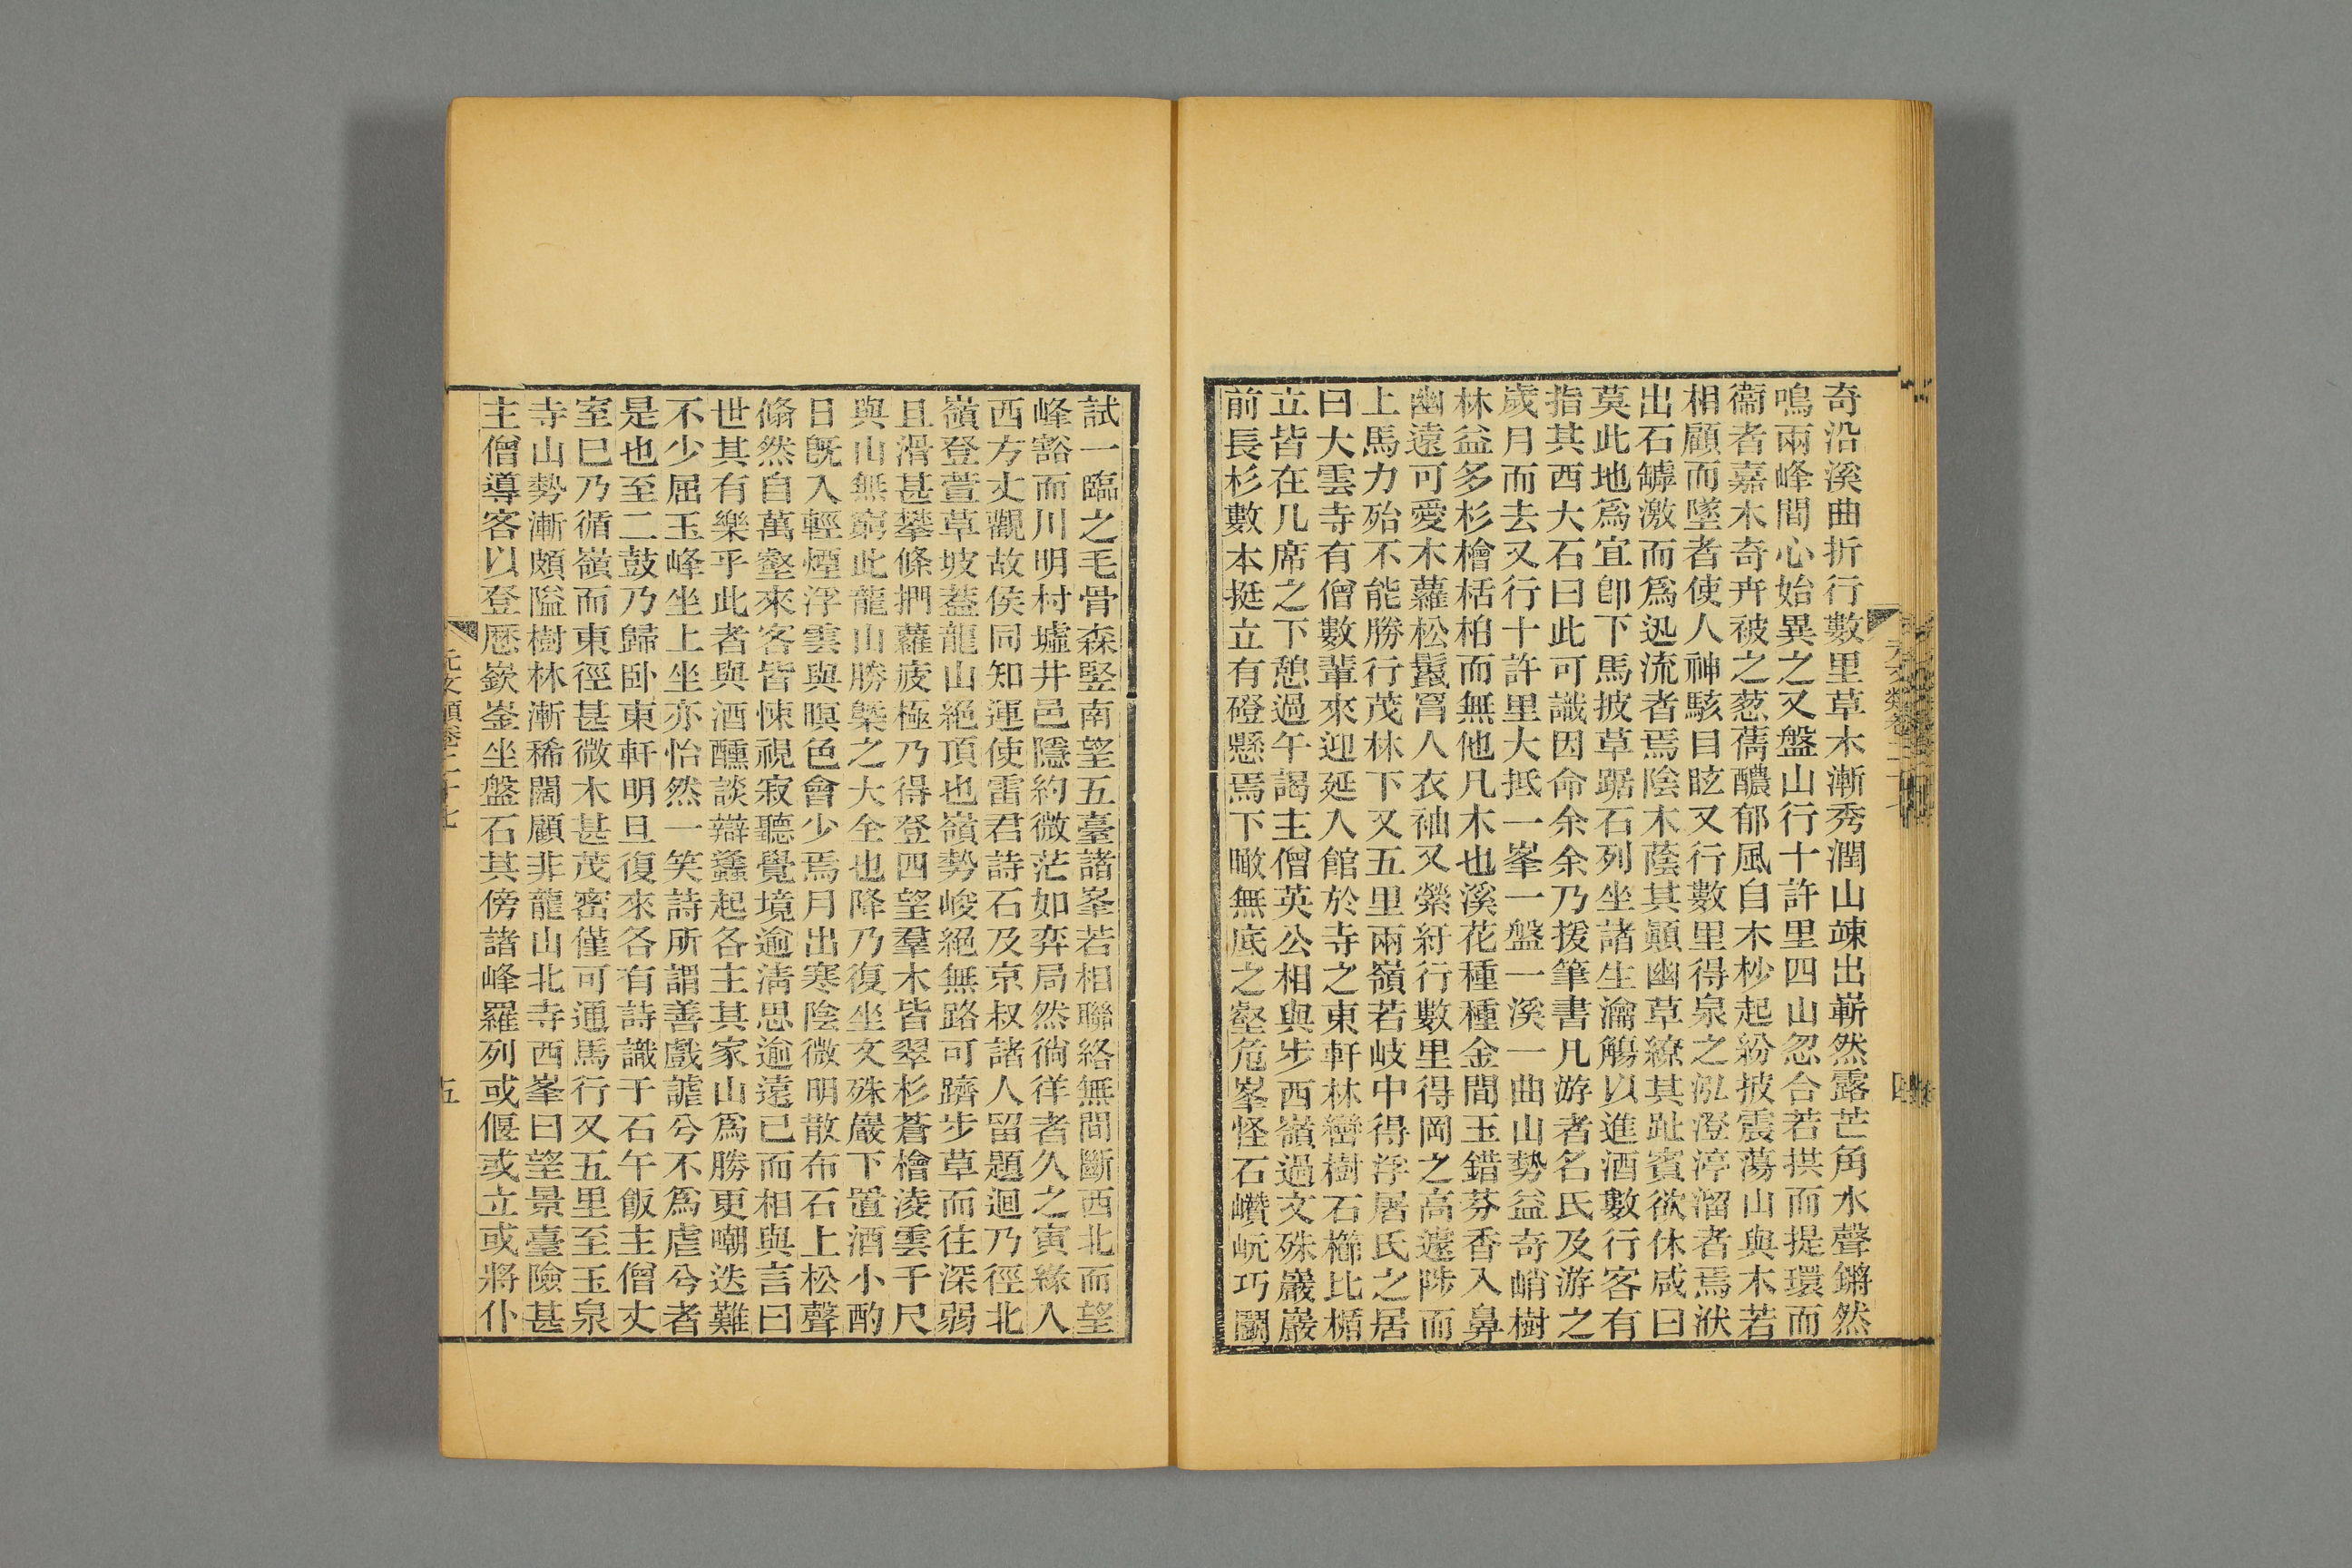 奇沿溪曲折行數里草木漸秀潤山竦出嶄然露芒角水聲鏘然
鳴兩峰間心始異之又盤山行十許里四山忽合若拱而提環而
衞者嘉木奇卉被之葱蒨醲郁風自木杪起紛披震蕩山與木若
相顧而墜者使人神駭目眩又行數里得泉之泓澄渟溜者焉洑
出石罅激而爲迅流者焉陰木蔭其顚幽草繚其趾賓欲休咸曰
莫此地爲宜卽下馬披草踞石列坐諸生瀹觴以進酒數行客有
指其西大石曰此可識因命余余乃援筆書凡游者名氏及游之
歲月而去又行十許里大抵一峯一盤一溪一曲山勢益奇峭樹
林益多杉檜栝柏而無他凡木也溪花種種金間玉錯芬香入鼻
幽遠可愛木蘿松鬣罥人衣袖又縈紆行數里得岡之高遽陟而
上馬力殆不能勝行茂林下又五里兩嶺若岐中得浮屠氏之居
曰大雲寺有僧數輩來迎延入館於寺之東軒林巒樹石櫛比楯
立皆在几席之下憩過午謁主僧英公相與步西嶺過文殊巖巖
前長杉數本挺立有磴懸焉下瞰無底之壑危峯怪石巑岏巧鬬
試一臨之毛骨森竪南望五臺諸峯若相聯絡無間斷西北而望
峰豁而川明村墟井邑隱約微茫如弈局然徜徉者久之寅緣入
西方丈觀故侯同知運使雷君詩石及京叔諸人留題迴乃徑北
嶺登萱草坡蓋龍山絕頂也嶺勢峻絕無路可躋步草而往深弱
且滑甚攀條捫蘿疲極乃得登四望羣木皆翠杉蒼檜凌雲千尺
與山無窮此龍山勝槩之大全也降乃復坐文殊巖下置酒小酌
日旣入輕煙浮雲與暝色會少焉月出寒陰微明散布石上松聲
翛然自萬壑來客皆悚視寂聽覺境逾淸思逾遠已而相與言曰
世其有樂乎此者與酒醺談辯蠭起各主其家山爲勝更嘲迭難
不少屈玉峰坐上坐亦怡然一笑詩所謂善戲謔兮不爲虐兮者
是也至二鼓乃歸卧東軒明旦復來各有詩識于石午飯主僧丈
室已乃循嶺而東徑甚微木甚茂密僅可通馬行又五里至玉泉
寺山勢漸頗隘樹林漸稀闊顧非龍山北寺西峯曰望景臺險甚
主僧導客以登歷嶔崟坐盤石其傍諸峰羅列或偃或立或將仆
元文類卷二十七
五